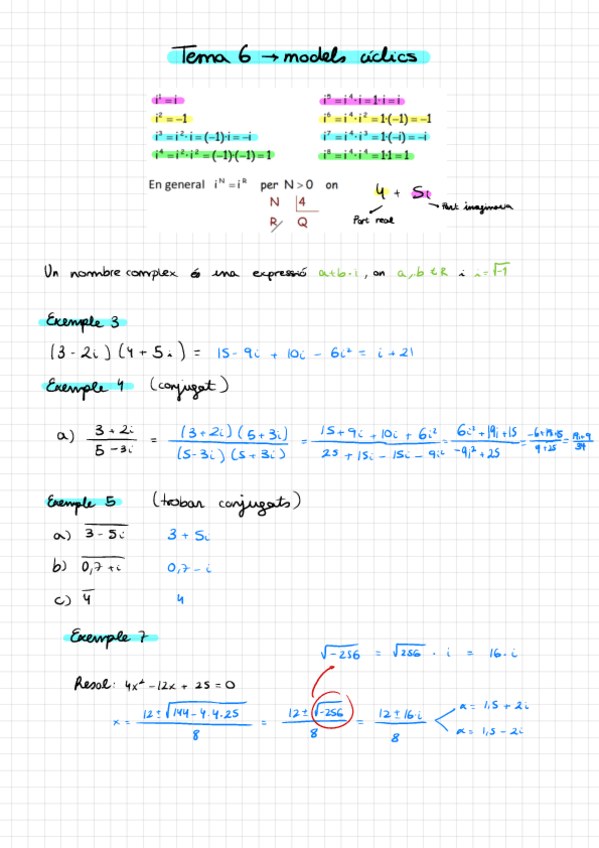 Tema 6 → models cíclics
i¹ = i
i² = -1
i³ = i²·i = (-1)·i = -i
i⁴ = i²·i² = (-1)·(-1) = 1
i⁵ = i⁴·i = 1·i = i
i⁶ = i⁴·i² = 1·(-1) = -1
i⁷ = i⁴·i³ = 1·(-i) = -i
i⁸ = i⁴·i⁴ = 1·1 = 1
En general iᴺ = iᴿ per N > 0 on
N 4
R Q
4 + 5i
Part real
Part imaginaria
Un nombre complex és una expressió a+b·i, on a,b ∈ R i i=√-1
Exemple 3
(3 - 2i)(4 + 5i) = 15 - 9i + 10i - 6i² = i + 21
Exemple 4 (conjugat)
a) (3 + 2i)/(5 - 3i) = (3+2i)(5+3i)/(5-3i)(5+3i) = (15 + 9i + 10i + 6i²)/(25 + 15i - 15i - 9i²) = (6i² + 19i + 15)/(-9i² + 25) = (-6+19i+15)/(9+25) = (19i+9)/34
Exemple 5 (trobar conjugats)
a) 3 - 5i 3 + 5i
b) 0,7 + i 0,7 - i
c) 4 4
Exemple 7
√-256 = √256 · i = 16·i
Resol: 4x² - 12x + 25 = 0
x = (12 ± √144 - 4·4·25)/8 = (12 ± √-256)/8 = (12 ± 16·i)/8
x = 1,5 + 2i
x = 1,5 - 2i